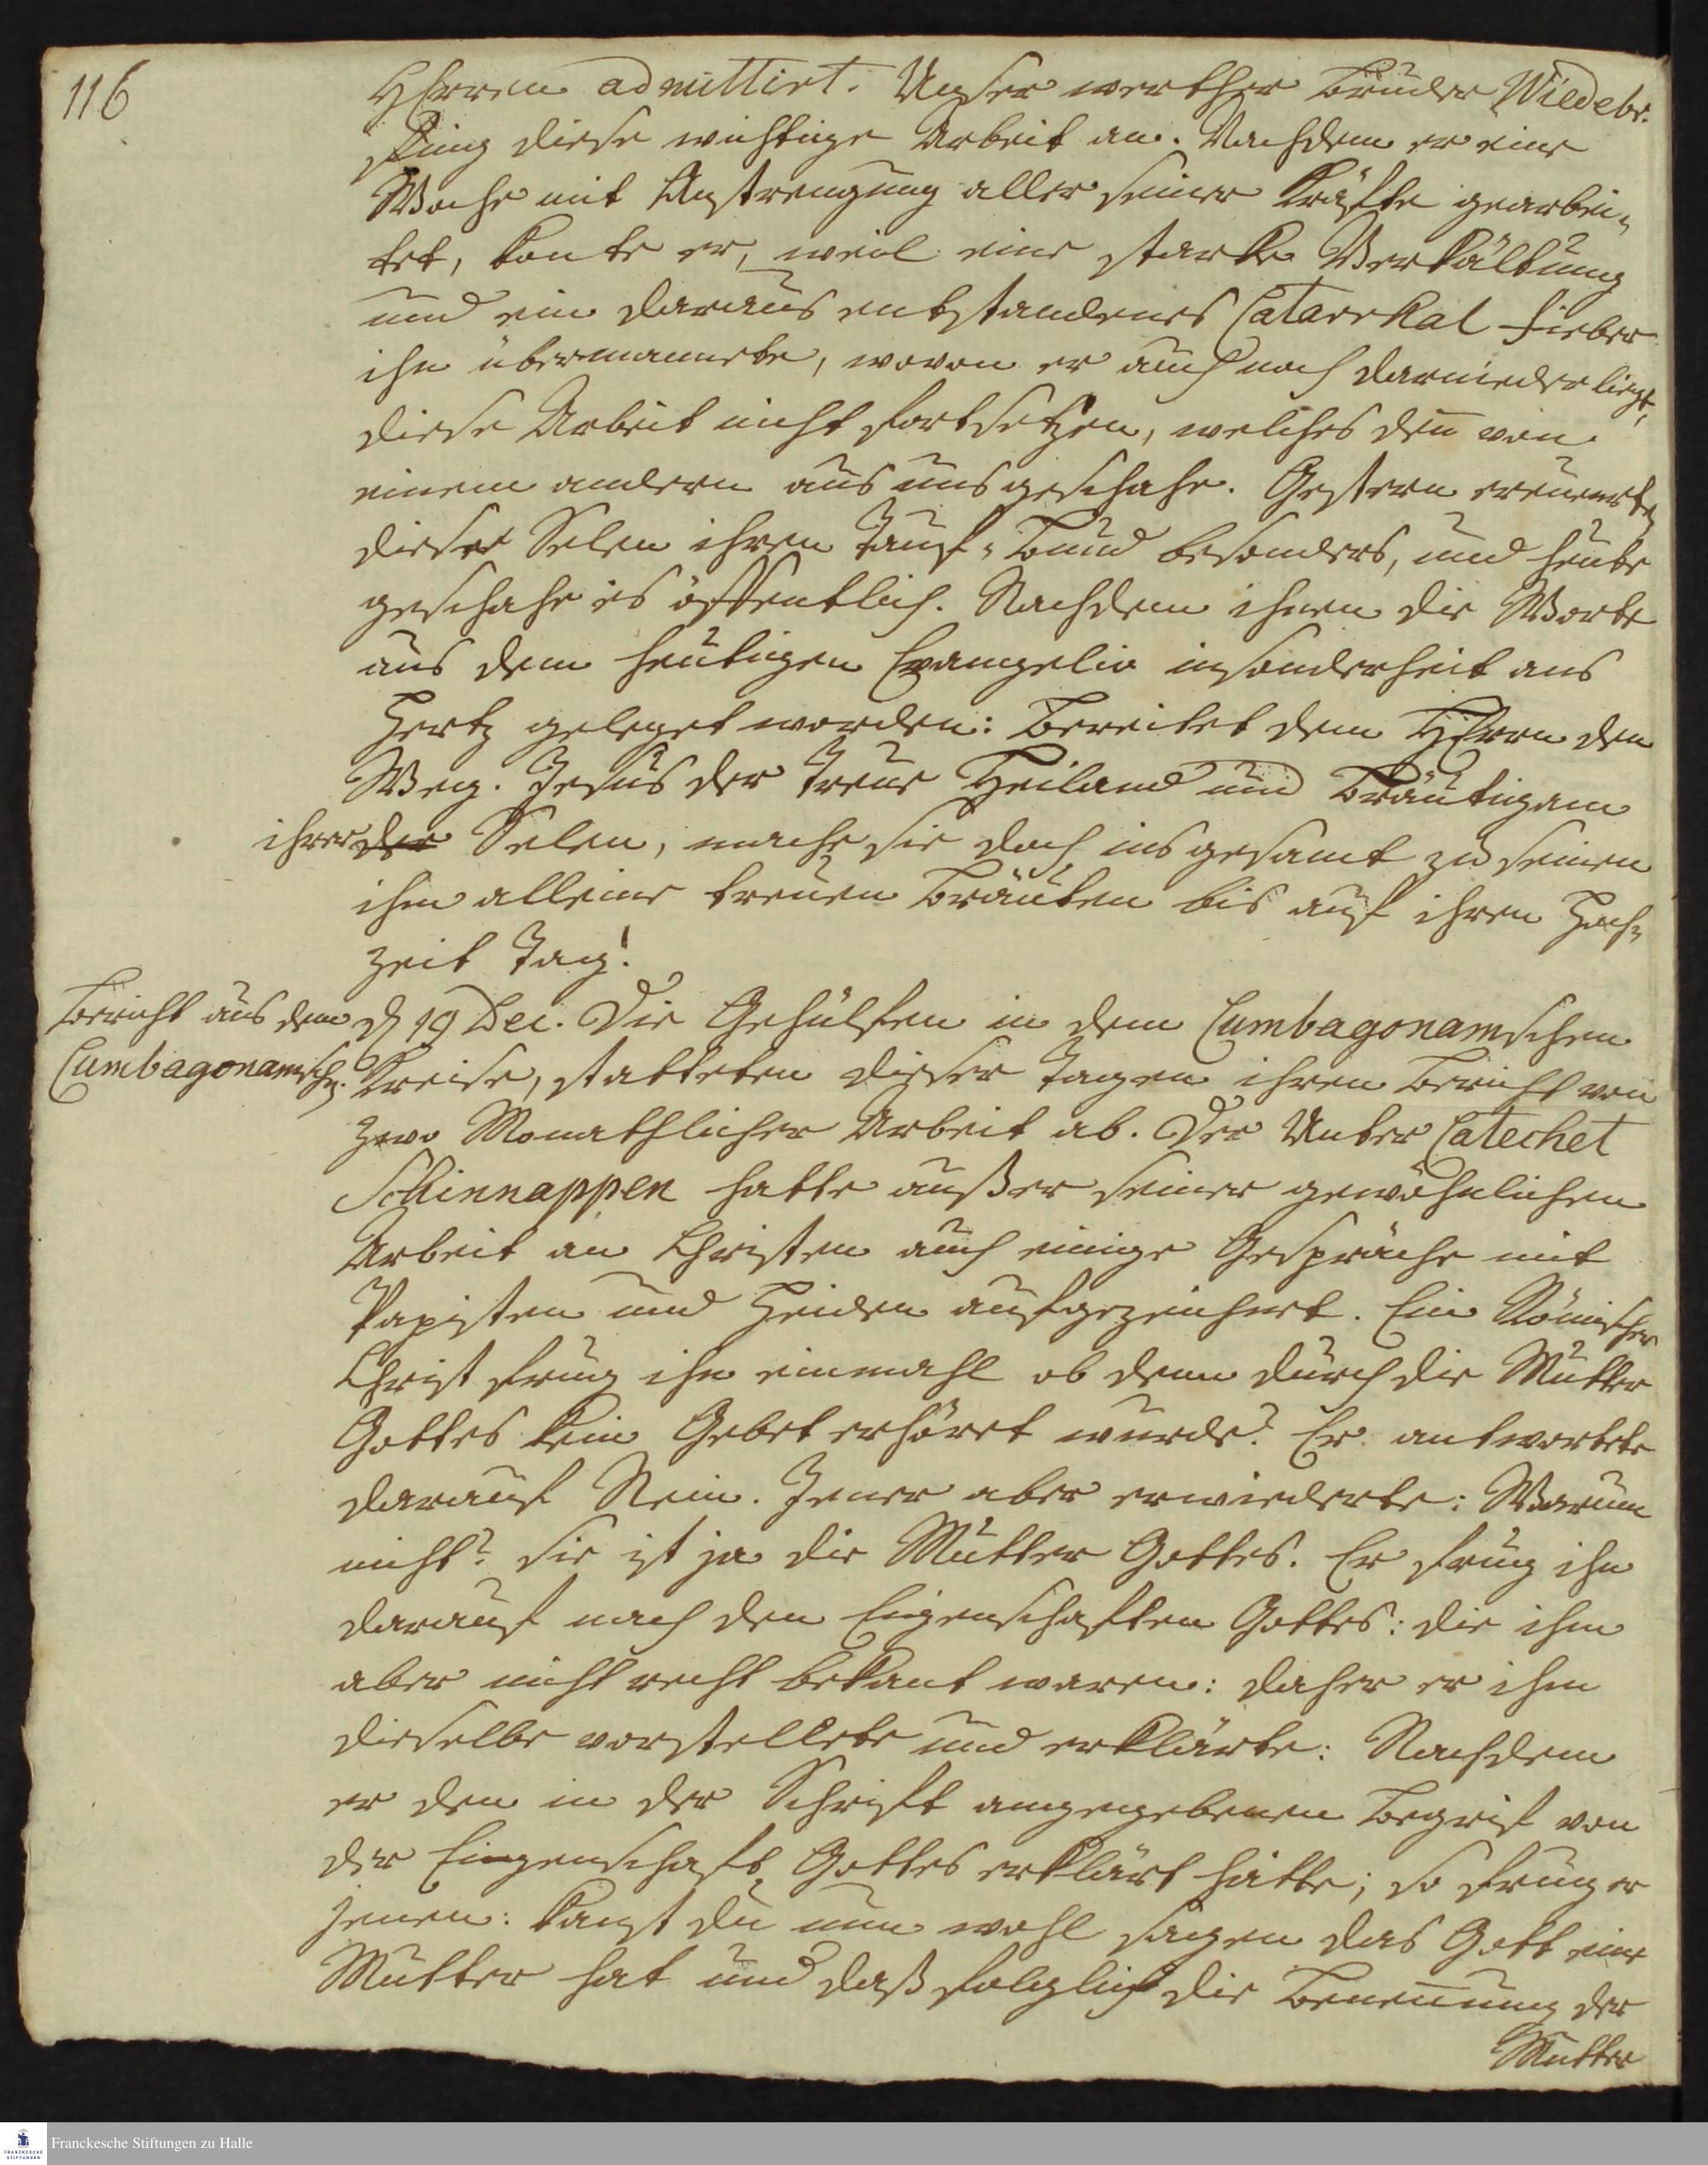 116
HErren admittirt. Unser werther Bruder Wiedebr.
fing diese wichtige Arbeit an. Nachdem er eine
Woche mit Anstrengung aller seiner Kräfte gearbei„
tet, konte er, weil eine starke Verkältung
und ein daraus entstandenes Catarrhal fieber
ihn übermannete, wovon er auch noch darnieder liegt,
diese Arbeit nicht fortsetzen, welches den̄ von
einem andern aus uns geschahe. Gestern erneuerten
diese Selen ihren Tauf-Bund besonders, und heute
geschahe es öffentlich. Nachdem ihnen die Worte
aus dem heutigen Evangelio insonderheit ans
Hertz geleget worden: Bereitet dem HErrn den
Weg. Jesus der treue Heiland und Bräutigam
ihrer der Selen, mache sie doch ins gesamt zu seinen
ihm alleine treuen Bräuten bis auf ihren Hoch„
zeit Tag!
Bericht aus dem
Cumbagonamsch.
d 19 Dec. Die Gehülfen in dem Cumbagonamschen
Kreise, statteten dieser Tagen ihren Bericht von
zwo Monathlicher Arbeit ab. Der Unter Catechet
Schinnappen hatte außer seiner gewöhnlichen
Arbeit an Christen auch einige Gespräche mit
Papisten und Heiden aufgezeichnet. Ein Römischer
Christ frug ihn einmahl ob denn durch die Mutter
Gottes kein Gebet erhöret wurde? Er antwortete
darauf Nein. Jener aber erwiederte: Warum
nicht? sie ist ja die Mutter Gottes. Er frug ihn
darauf nach den Eigenschaften Gottes: die ihm
aber nicht recht bekant waren: daher er ihm
dieselbe vorstellete und erklärte: Nachdem
er den in der Schrift angegebenen Begrif von
der Eigenschaft Gottes erklärt hatte; so frug er
jenen: kanst du nun wohl sagen das Gott eine
Mutter hat und daß folglich die Benennung der
Mutter
Franckesche Stiftungen zu Halle